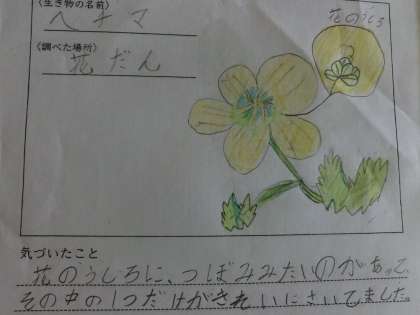 〈生き物の名前〉
ヘチマ
〈調べた場所〉
花だん
花のうしろ
気づいたこと
花のうしろに、つぼみみたいのがあって、
その中の1つだけがきれいにさいてました。